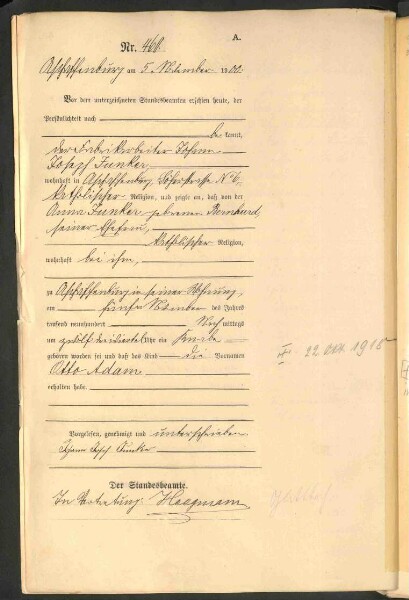 A.
Nr. 468.
Aschaffenburg am 5 November 1900
Vor dem unterzeichneten Standesbeamten erschien heute, der
Persönlichkeit nach
be kannt,
der Fabrikarbeiter Johann
Joseph Junker
wohnhaft in Aschaffenburg,
katholischer Religion, und zeigte an, daß von der
Anna Junker geborenen
seiner Ehefrau,
katholischer Religion,
wohnhaft bei ihm,
zu Aschaffenburg in seiner Wohnung,
am fünften November des Jahres
tausend neunhundert Nach mittags
um Uhr ein Knabe
geboren worden sei und daß das Kind die Vornamen
Otto Adam
erhalten habe.
22 Okt. 1918
Vorgelesen, genehmigt und unterschrieben
Johann Josef Junker
Der Standesbeamte.
In Vertretung: